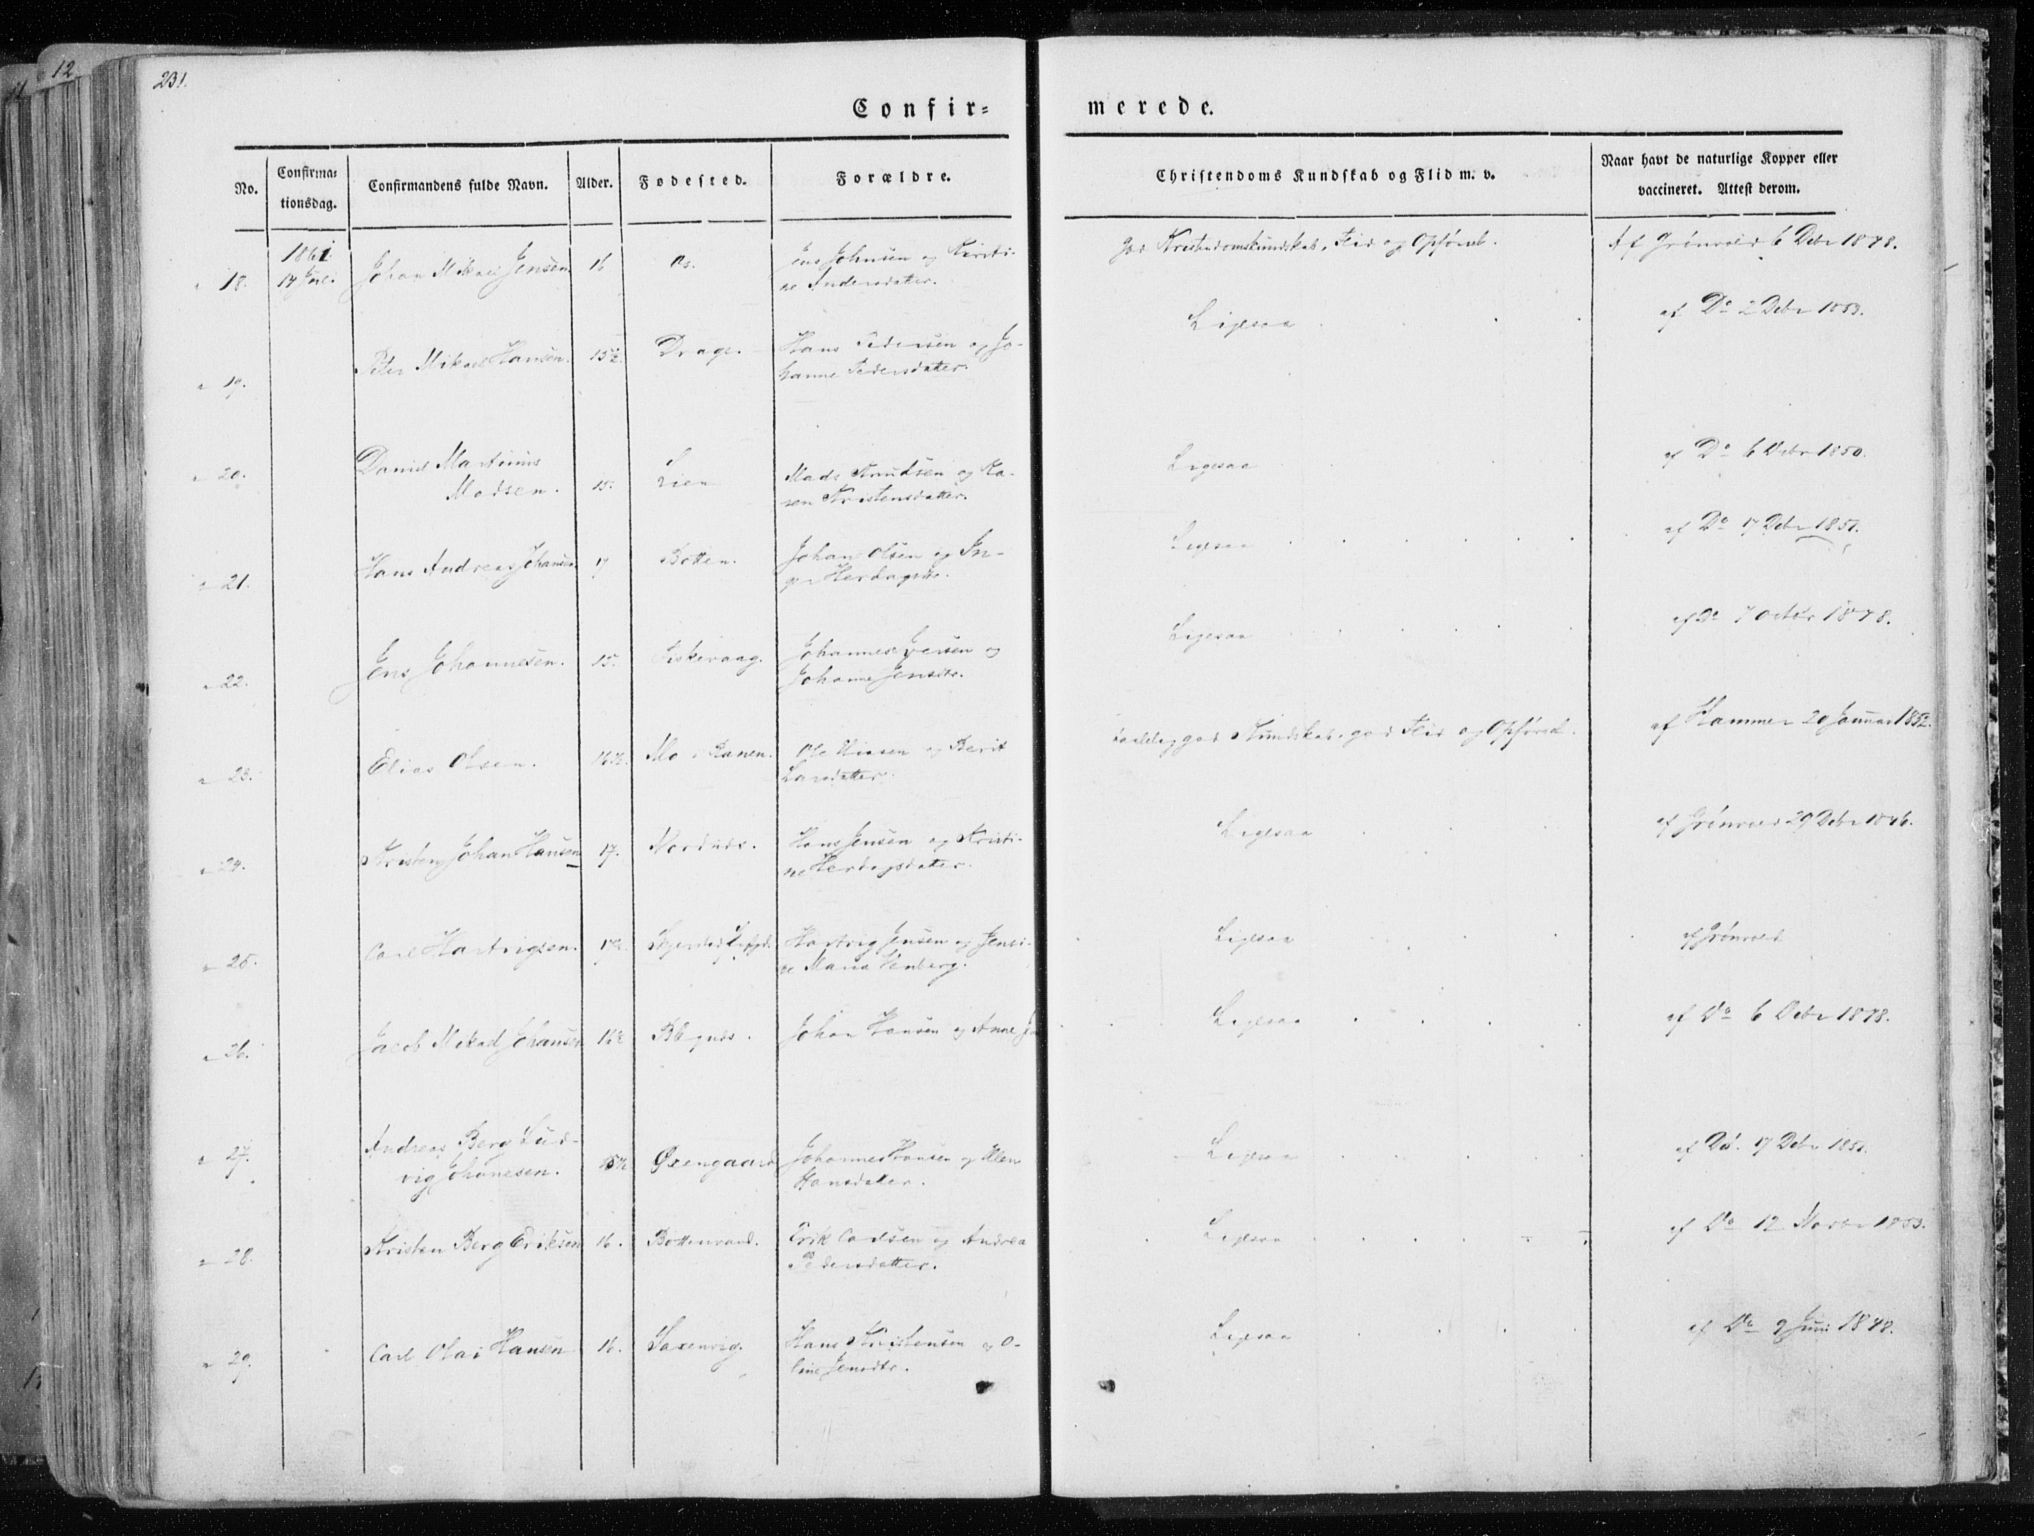 12
231.
Confir= merede.
No.
Confirma=
tionsdag.
Confirmandens fulde Navn.
Alder.
Fødested.
Forældre.
Christendoms Kundskab og Flid m. v.
Naar havt de naturlige Kopper eller
vaccineret. Attest derom.
18. 1861 Johan Mikael Jensen 16 Os. Jens Johnsen og Kirsti-
ne Andersdatter. God Kristendomskundskab, Flid og Opførsel. Af Grønvold 6 Debr 1848.
19. Peter Mikael Hansen. 15½ Drage. Hans Pedersen og Jo-
hanne Pedersdatter. Ligesaa af Do 2 Debr 1853.
20. Daniel Martinus
Madsen. 15. Lien Mads Knudsen og Ka-
ren Kristensdatter. Ligesaa af Do 6 Debr 1850.
21. Hans Andreas Johansen 17 Botten. Johan Olsen og In-
ger Herdagsdtr. Ligesaa af Do 17 Debr 1851.
22. Jens Johannesen. 15. Fiskevaag. Johannes Iversen og
Johanne Jensdtr. Ligesaa af Do 7 Octbr 1848.
23. Elias Olsen. 16½ Mo i Ranen. Ole Nilsen og Berit
Larsdatter. god Kundskab, god Flid og Opførsel. af Hammer 20 Januar 1852.
24. Kristen Johan Hansen 17. Nordnæs. Hans Jensen og Kristi-
ne Herdagsdatter. Ligesaa af Grønvold 29 Debr 1846.
25. Carl Hartvigsen. Hartvig Jensen og Jensi-
ne Maria Ligesaa af Grønvold
26. Jacob Mikael Johansen 16½ Johan Hansen og Anne Ligesaa af Do 6 Debr 1848.
27. Andreas Berg Lud-
vig Johansen. 15½ Øxengaard Johannes Hansen og Elen
Hansdatter. Ligesaa af Do. 17 Debr 1851.
28. Kristen Berg Eriksen 16. Bottenvand. Erik Carlsen og Andrea
Pedersdatter. Ligesaa af Do 12 Novbr 1853.
29. Carl Olai Hansen 16. Saxenvig. Hans Kristensen og O-
line Jensdtr. Ligesaa af Do 9 Juni 1848.